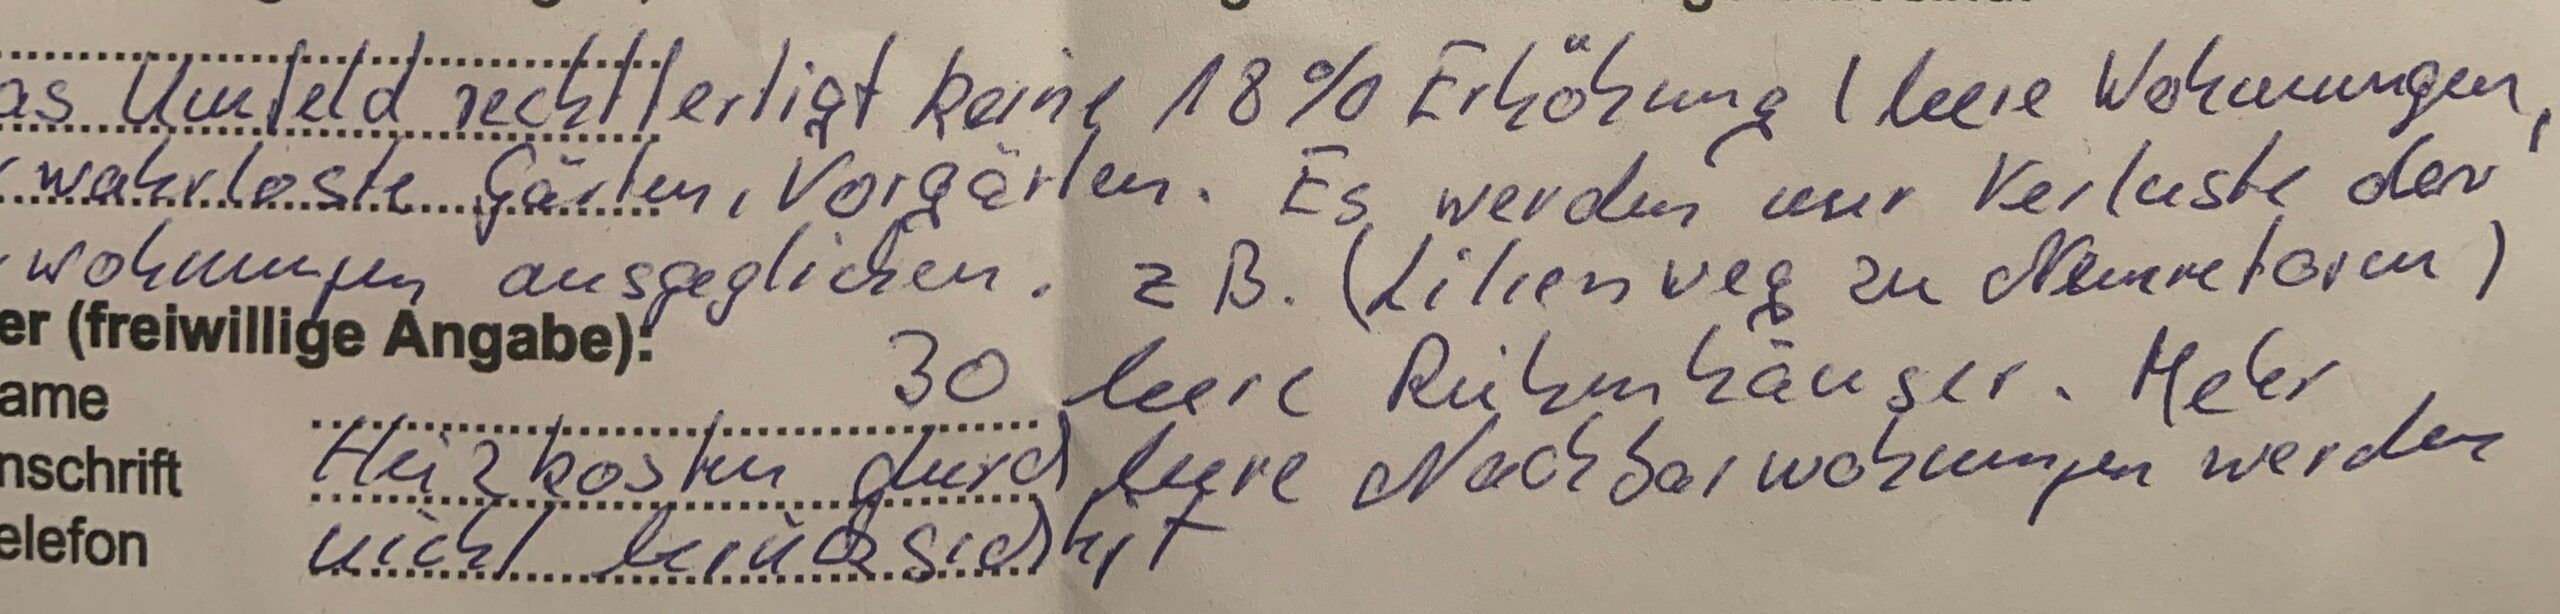 as Umfeld rechtfertigt keine 18% Erhöhung ( leere Wohnungen,
wahrloste Gärten, Vorgärten. Es werden nur Verluste der
wohnungen ausgeglichen. z B. (Lilienweg zu
er (freiwillige Angabe):
30 leere Reihenhäuser. Mehr
ame
Heizkosten durch leere Nachbarwohnungen werden
nschrift
nicht berücksichtigt
elefon